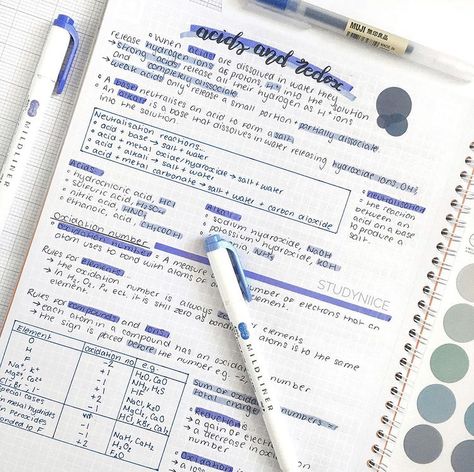 acids and redox
MUJI 無印良品
MILDLINER
When acids are dissolved in water they
release hydrogen ions as protons, H⁺ into the solution
→ strong acids release all their hydrogen as H⁺ ions
and completely dissociate
→ weak acids only release a small portion + partially dissociate
A base neutralises an acid to form a salt
An alkali is a base that dissolves in water releasing hydroxide ions, OH⁻
into the solution.
Neutralisation reactions...
acid + base → salt + water
acid + metal oxide/hydroxide → salt + water
acid + alkali → salt + water
acid + metal carbonate → salt + water + carbon dioxide
Neutralisation
the reaction
between an
acid and a base
to produce a
salt.
Acids
hydrochloric acid, HCl
sulfuric acid, H₂SO₄
nitric acid, HNO₃
ethanoic acid, CH₃COOH
Alkali
sodium hydroxide, NaOH
potassium hydroxide, KOH
NH₃
Oxidation number
Oxidation number: A measure of number of electrons that an
atom uses to bond with atoms of element.
STUDYNIICE
Rules for elements
→ the oxidation number is always elements
→ in H₂, O₂, P₄ ect. it is still zero as atoms is to the same
element.
Rules for compounds and ions
→ each atom in a compound has an oxidation number
→ the sign is placed before the number e.g. -2,
Element
oxidation no.
e.g.
O
-2
H₂O, CaO
H
+1
NH₃, H₂S
F
-1
HF
Na⁺, K⁺
+1
NaCl, K₂O
Mg²⁺, Ca²⁺
+2
MgCl₂, CaO
Cl⁻, Br⁻, I⁻
-1
HCl, KBr
special cases
in metal hydrides
-1
NaH, CaH₂
in peroxides
-1
H₂O₂
bonded to F
+2
F₂O
Sum of
total charge
Reduction
→ a gain of
→ a decrease in
number
Oxidation is
MILDLINER